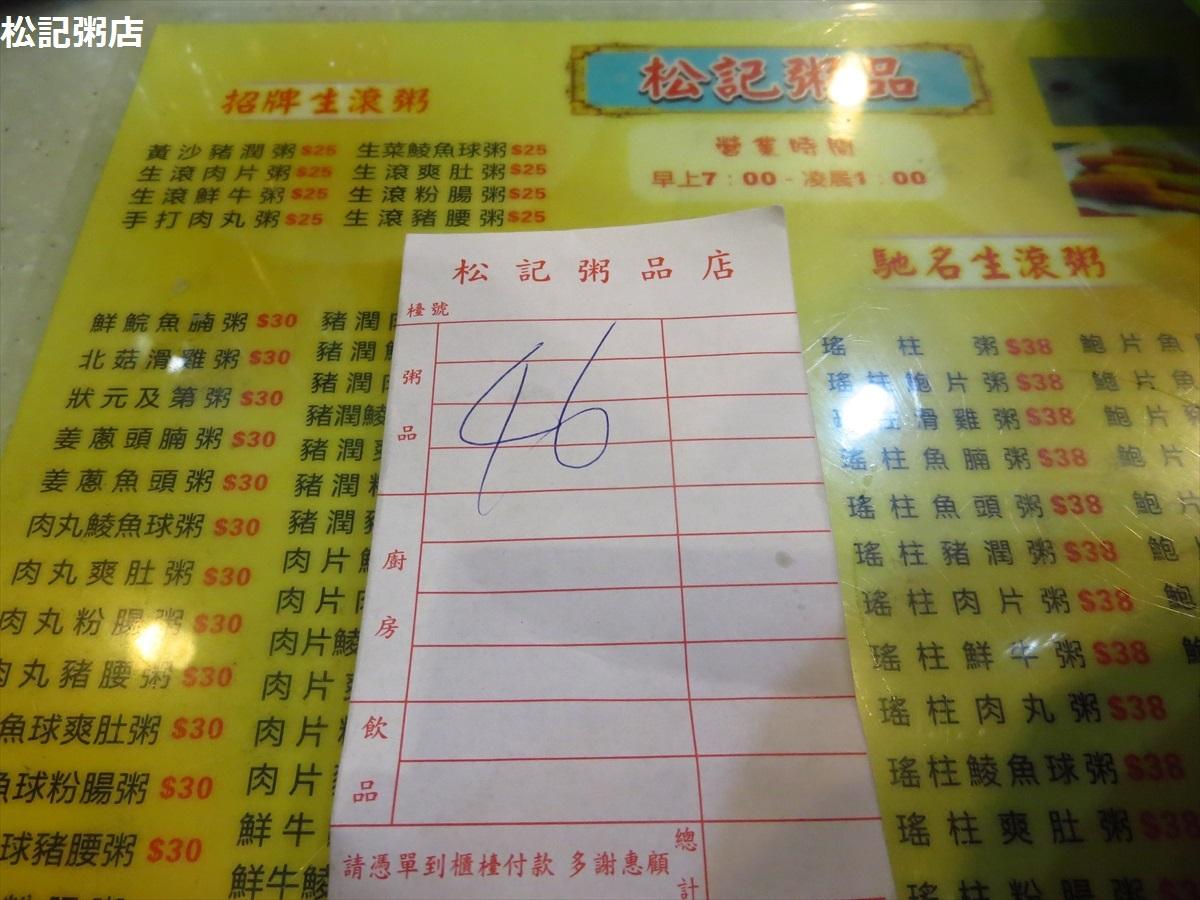 松記粥店
松記粥品
營業時間
早上7：00 - 凌晨1：00
招牌生滾粥
黃沙豬潤粥$25 生菜鯪魚球粥$25
生滾肉片粥$25 生滾爽肚粥$25
生滾鮮牛粥$25 生滾粉腸粥$25
手打肉丸粥$25 生滾豬腰粥$25
鮮鯇魚腩粥$30 豬潤
北菇滑雞粥$30 豬潤
狀元及第粥$30 豬潤
姜蔥頭腩粥$30 豬潤
姜蔥魚頭粥$30 豬潤
肉丸鯪魚球粥$30 豬潤
肉丸爽肚粥$30 肉片
肉丸粉腸粥$30 肉片
肉丸豬腰粥$30 肉片鯪
魚球爽肚粥$30 肉片
魚球粉腸粥$30 肉片
球豬腰粥$30 鮮牛
鮮牛鯪
松記粥品店
檯號
粥品
46
廚房
飲品
請憑單到櫃檯付款 多謝惠顧
總計
馳名生滾粥
瑤柱粥$38 鮑片魚
瑤柱鮑片粥$38 鮑片魚
滑雞粥$38 鮑片
瑤柱魚腩粥$38 鮑片
瑤柱魚頭粥$38 鮑片
瑤柱豬潤粥$38 鮑
瑤柱肉片粥$38 鮑
瑤柱鮮牛粥$38
瑤柱肉丸粥$38
瑤柱鯪魚球粥$38
瑤柱爽肚粥$38
瑤柱粉腸粥